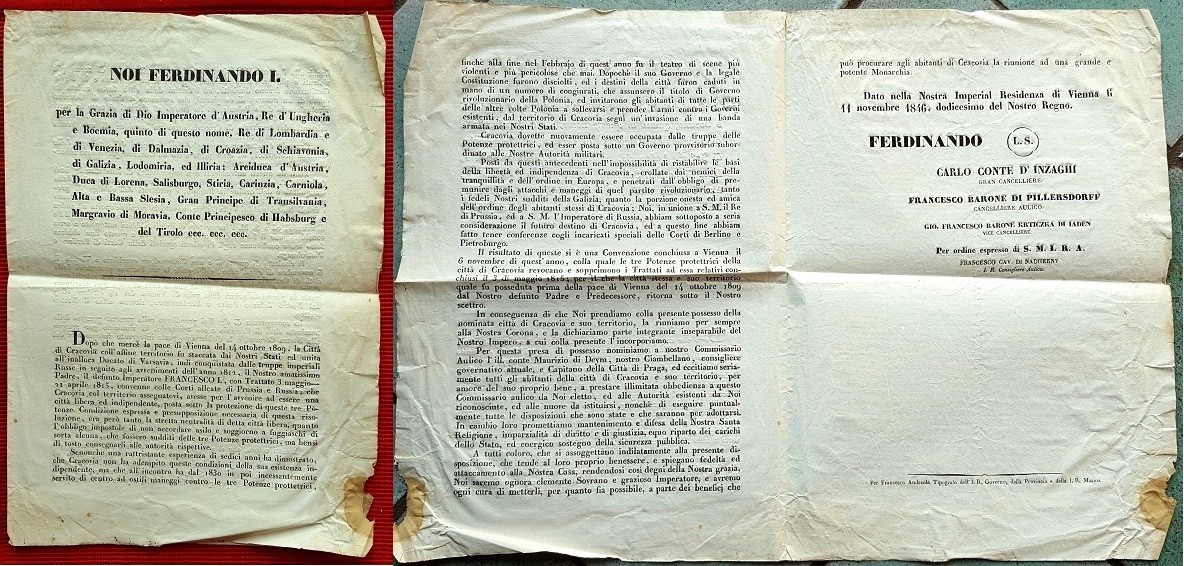 NOI FERDINANDO I.
per la Grazia di Dio Imperatore d'Austria, Re d'Ungheria
e Boemia, quinto di questo nome, Re di Lombardia e
di Venezia, di Dalmazia, di Croazia, di Schiavonia,
di Galizia, Lodomiria, ed Illiria; Arciduca d'Austria,
Duca di Lorena, Salisburgo, Stiria, Carinzia, Carniola,
Alta e Bassa Slesia, Gran Principe di Transilvania,
Margravio di Moravia, Conte Principesco di Habsburg e
del Tirolo ecc. ecc. ecc.
Dopo che mercè la pace di Vienna del 14 ottobre 1809, la Città
di Cracovia coll'affine territorio fu staccata dai Nostri Stati ed unita
all'inalloca Ducato di Varsavia, indi conquistata dalle truppe imperiali
Russe in seguito agli avvenimenti dell'anno 1812, il Nostro amatissimo
Padre, il defunto Imperatore FRANCESCO I., con Trattato 3 maggio—
21 aprile 1815, convenne colle Corti alleate di Prussia e Russia, che
Cracovia col territorio assegnatovi, avesse per l'avvenire ad essere una
città libera ed indipendente, posta sotto la protezione di queste tre Po-
tenze. Condizione espressa e presupposizione necessaria di questa riso-
luzione, era però tanto la stretta neutralità di detta città libera, quanto
l'obbligo impostole di non accordare asilo e soggiorno a fuggiaschi di
sorta alcuna, che fossero sudditi delle tre Potenze protettrici, ma bensì
di tosto consegnarli alle autorità rispettive.
Senonchè una rattristante esperienza di sedici anni ha dimostrato,
che Cracovia non ha adempito queste condizioni della sua esistenza in-
dipendente, ma che all'incontro ha dal 1830 in poi incessantemente
servito di centro ad ostili maneggi contro le tre Potenze protettrici,
finchè alla fine nel Febbrajo di quest'anno fu il teatro di scene più
violenti e più pericolose che mai. Dopochè il suo Governo e la legale
Costituzione furono disciolti, ed i destini della città furon caduti in
mano di un numero di congiurati, che assunsero il titolo di Governo
rivoluzionario della Polonia, ed invitarono gli abitanti di tutte le parti
delle altre volte Polonia a sollevarsi e prender l'armi contro i Governi
esistenti, dal territorio di Cracovia seguì un'invasione di una banda
armata nei Nostri Stati.
Cracovia dovette nuovamente essere occupata dalle truppe delle
Potenze protettrici, ed esser posta sotto un Governo provvisorio subor-
dinato alle Nostre Autorità militari.
Posti da questi antecedenti nell'impossibilità di ristabilire le basi
della libertà ed indipendenza di Cracovia, crollate dai nemici della
tranquillità e dell'ordine in Europa, e penetrati dall'obbligo di pre-
munire dagli attacchi e maneggi di quel partito rivoluzionario, tanto
i fedeli Nostri sudditi della Galizia, quanto la porzione onesta ed amica
dell'ordine degli abitanti stessi di Cracovia; Noi, in unione a S. M. il Re
di Prussia, ed a S. M. l'Imperatore di Russia, abbiam sottoposto a seria
considerazione il futuro destino di Cracovia, ed a questo fine abbiam
fatto tener conferenze cogli incaricati speciali delle Corti di Berlino e
Pietroburgo.
Il risultato di queste si è una Convenzione conchiusa a Vienna il
6 novembre di quest'anno, colla quale le tre Potenze protettrici della
città di Cracovia revocano e sopprimono i Trattati ad essa relativi con-
chiusi il 3 di maggio 1815, per il che la città stessa e suo territorio
quale fu posseduta prima della pace di Vienna del 14 ottobre 1809
dal Nostro defunto Padre e Predecessore, ritorna sotto il Nostro
scettro.
In conseguenza di che Noi prendiamo colla presente possesso della
nominata città di Cracovia e suo territorio, la riuniamo per sempre
alla Nostra Corona, e la dichiariamo parte integrante inseparabile del
Nostro Impero, a cui colla presente l'incorporiamo.
Per questa presa di possesso nominiamo a nostro Commissario
Aulico l'ill. conte Maurizio di Deym, nostro Giambellano, consigliere
governativo attuale, e Capitano della Città di Praga, ed eccitiamo seria-
mente tutti gli abitanti della città di Cracovia e suo territorio, per
amore del suo proprio bene, a prestare illimitata obbedienza a questo
Commissario aulico da Noi eletto, ed alle Autorità esistenti da Noi
riconosciute, ed alle nuove da istituirsi, nonchè di eseguire puntual-
mente tutte le disposizioni che sono state e che saranno per adottarsi.
In cambio loro promettiamo mantenimento e difesa della Nostra Santa
Religione, imparzialità di diritto e di giustizia, equo riparto dei carichi
dello Stato, ed energico sostegno della sicurezza pubblica.
A tutti coloro, che si assoggettano indilatamente alla presente di-
sposizione, che tende al loro proprio benessere, e spiegano fedeltà ed
attaccamento alla Nostra Casa, rendendosi così degni della Nostra grazia,
Noi saremo ognora clemente Sovrano e grazioso Imperatore, e avremo
ogni cura di metterli, per quanto fia possibile, a parte dei beneficj che
può procurare agli abitanti di Cracovia la riunione ad una grande e
potente Monarchia.
Dato nella Nostra Imperial Residenza di Vienna li
11 novembre 1846, dodicesimo del Nostro Regno.
FERDINANDO L. S.
CARLO CONTE D'INZAGHI
GRAN CANCELLIERE.
FRANCESCO BARONE DI PILLERSDORFF
CANCELLIERE AULICO.
GIO. FRANCESCO BARONE KRTICZKA DI JADEN
VICE CANCELLIERE.
Per ordine espresso di S. M. I. R. A.
FRANCESCO CAV. DI NADHERNY
I. R. Consigliere Aulico.
Per Francesco Andreola Tipografo dell'I. R. Governo, della Provincia e della I. R. Marina.